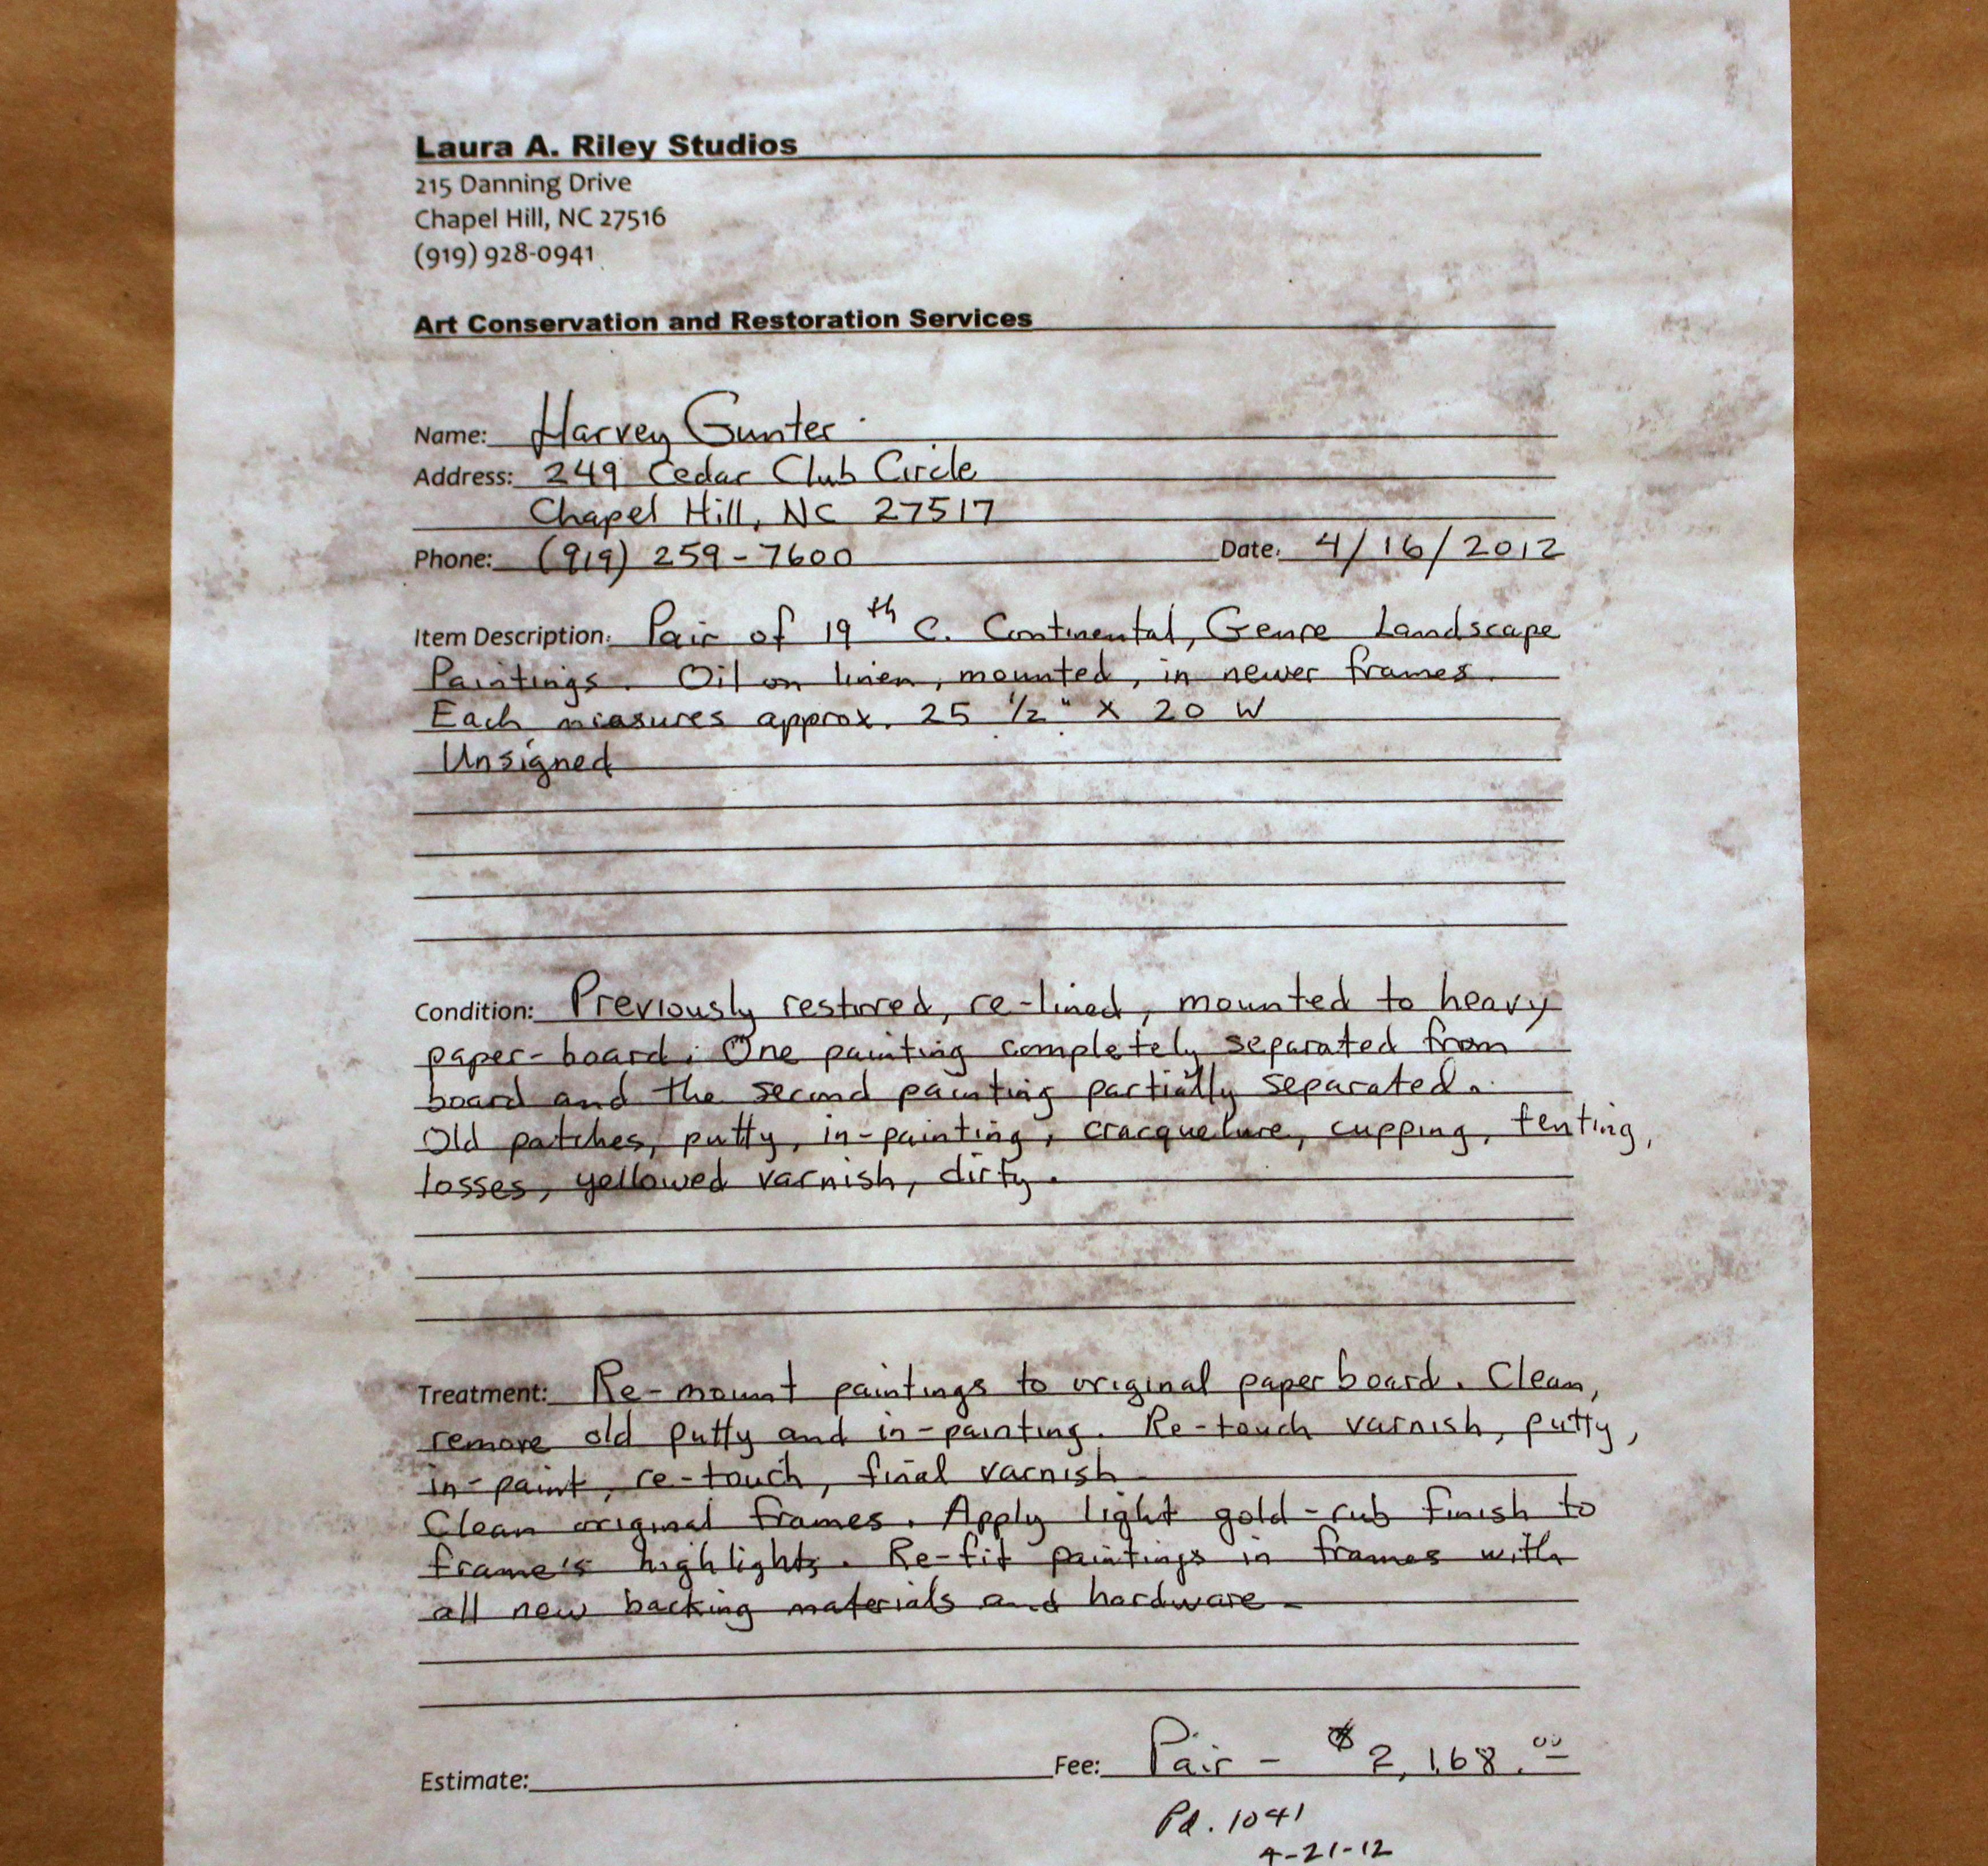 Laura A. Riley Studios
215 Danning Drive
Chapel Hill, NC 27516
(919) 928-0941
Art Conservation and Restoration Services
Name: Harvey Gunter
Address: 249 Cedar Club Circle
Chapel Hill, NC 27517
Phone: (919) 259-7600 Date: 4/16/2012
Item Description: Pair of 19th C. Continental, Genre Landscape
Paintings. Oil on linen, mounted, in newer frames.
Each measures approx. 25 1/2" X 20 W
Unsigned
Condition: Previously restored, re-lined, mounted to heavy
paper-board. One painting completely separated from
board and the second painting partially separated.
Old patches, putty, in-painting, cracquelure, cupping, tenting,
losses, yellowed varnish, dirty.
Treatment: Re-mount paintings to original paper board. Clean,
remove old putty and in-painting. Re-touch varnish, putty,
in-paint, re-touch, final varnish
Clean original frames. Apply light gold-rub finish to
frame's highlights. Re-fit paintings in frames with
all new backing materials and hardware.
Estimate: Fee: Pair - $2,168.00
Pd. 1041
4-21-12